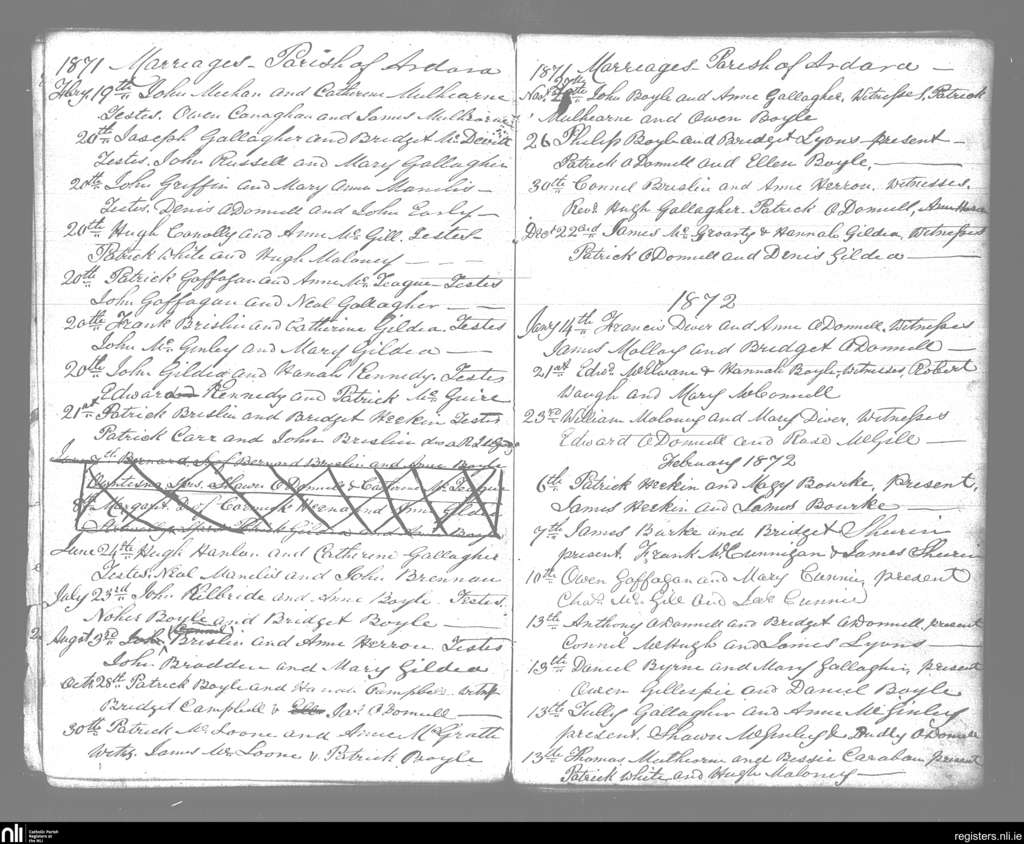 1871 Marriages - Parish of Ardara
Feby. 19th John Meehan and Catherine Mulhearne
Testes. Owen Canaghan and James Mulhearne
20th Joseph Gallagher and Bridget Mc Devitt
Testes. John Russell and Mary Gallagher
20th John Griffin and Mary Anne Manelis -
Testes. Denis O'Donnell and John Early -
20th Hugh Conolly and Anne Mc Gill. Testes -
Patrick White and Hugh Maloney - - -
20th Patrick Gaffagan and Anne Mc Teague - Testes
John Gaffagan and Neal Gallagher -
20th Frank Brislin and Catherine Gildea. Testes
John Mc Ginley and Mary Gildea -
20th John Gildea and Hanah Kennedy. Testes
Edward Kennedy and Patrick Mc Guire
21st Patrick Brislin and Bridget Heekin Testes
Patrick Carr and John Breslin
7th Bernard, of Bernard Breslin and Anne Boyle
Shawn O'Donnell & Catherine Mc Teague
8th Margaret, of Cormack Heena and Anne Gildea
June 24th Hugh Hanlan and Catherine Gallagher
Testes. Neal Manelis and John Brennan
July 23rd John Kilbride and Anne Boyle. Testes.
Noher Boyle and Bridget Boyle -
2 Augst 3rd John Connel Brislin and Anne Herron. Testes
John Bradden and Mary Gildea
Octr. 28th Patrick Boyle and Hannah Campbell.
Bridget Campbell & Jas. O'Donnell -
30th Patrick Mc Loone and Annie McGrath
Witns. James Mc Loone & Patrick Boyle
1871 Marriages - Parish of Ardara -
Nov. 20th John Boyle and Anne Gallagher. Witnesses, Patrick
Mulhearne and Owen Boyle
26 Philip Boyle and Bridget Lyons - present -
Patrick O'Donnell and Ellen Boyle. -
30th Connel Brislin and Anne Herron. Witnesses.
Revd. Hugh Gallagher. Patrick O'Donnell,
Decr 22nd James Mc Groarty & Hannah Gildea. Witnesses
Patrick O'Donnell and Denis Gildea -
1872
Jany 14th Francis Diver and Anne O'Donnell, Witnesses
James Molloy and Bridget O'Donnell -
21st Edwd. McElwane & Hannah Boyle, Witnesses, Robert
Waugh and Mary McConnell
23rd William Maloney and Mary Diver. Witnesses
Edward O'Donnell and Rose McGill -
February 1872
6th Patrick Heekin and Magy Bourke, present,
James Heekin and James Bourke -
7th James Burke and Bridget Sheerin
present. Frank McCrunnigan & James Sheerin
10th Owen Gaffagan and Mary Cunnie, present
Chas. Mc Gill and Cunnie
13th Anthony O'Donnell and Bridget O'Donnell, present
Connel McHugh and James Lyons -
13th Daniel Byrne and Mary Gallagher, present
Owen Gillespie and Daniel Boyle
13th Tully Gallagher and Anne McGinley
present. Shawn McGinley & Hudly O'Donnell
13th Thomas Mulhearn and Bessie Caraban present
Patrick White and Hugh Maloney -
nli Catholic Parish
Registers at
the NLI
registers.nli.ie